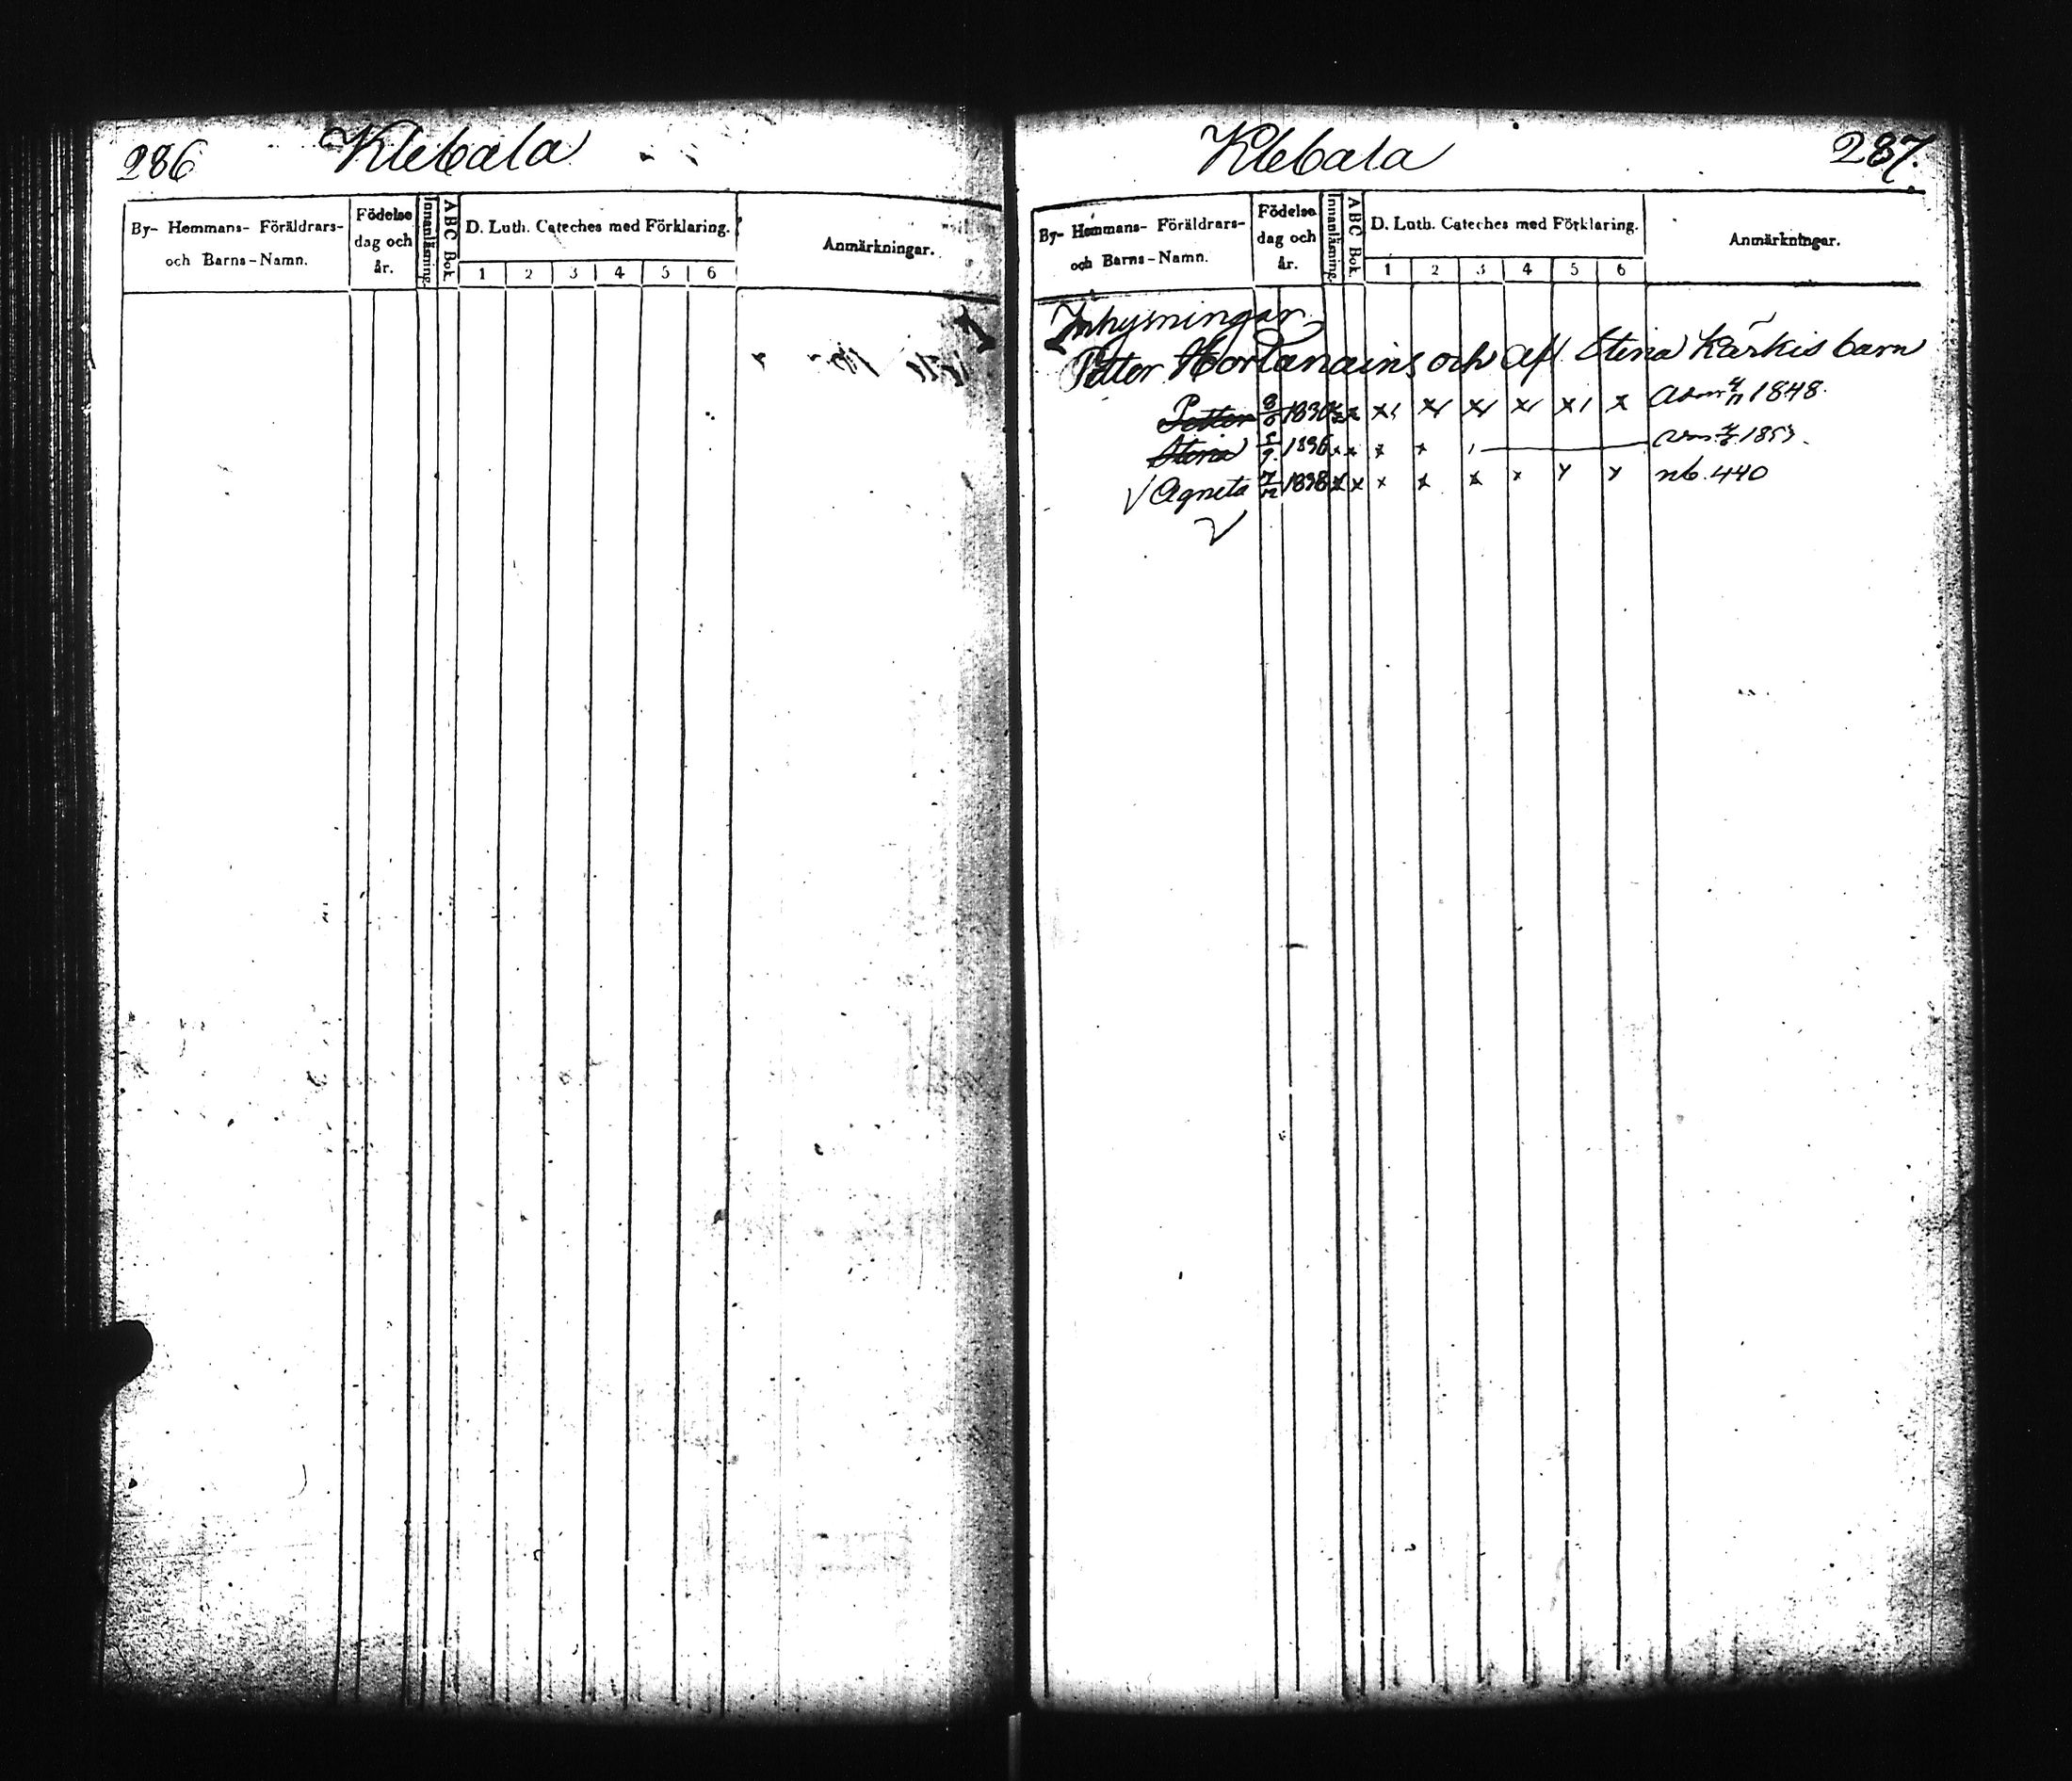 286 Klebala
By- Hemmans- Föräldrars- och Barns-Namn. Födelse dag och år. Innanläsning. ABC Bok. D. Luth. Cateches med Förklaring. 1 2 3 4 5 6 Anmärkningar.
Klebala 287.
By- Hemmans- Föräldrars- och Barns-Namn. Födelse dag och år. Innanläsning. ABC Bok. D. Luth. Cateches med Förklaring. 1 2 3 4 5 6 Anmärkningar.
Inhysningar
Petter och afl. Stina Kärkis barn
Petter x x x x x x x 1848.
Stina x x x x
Agneta x x x x x x nb. 440